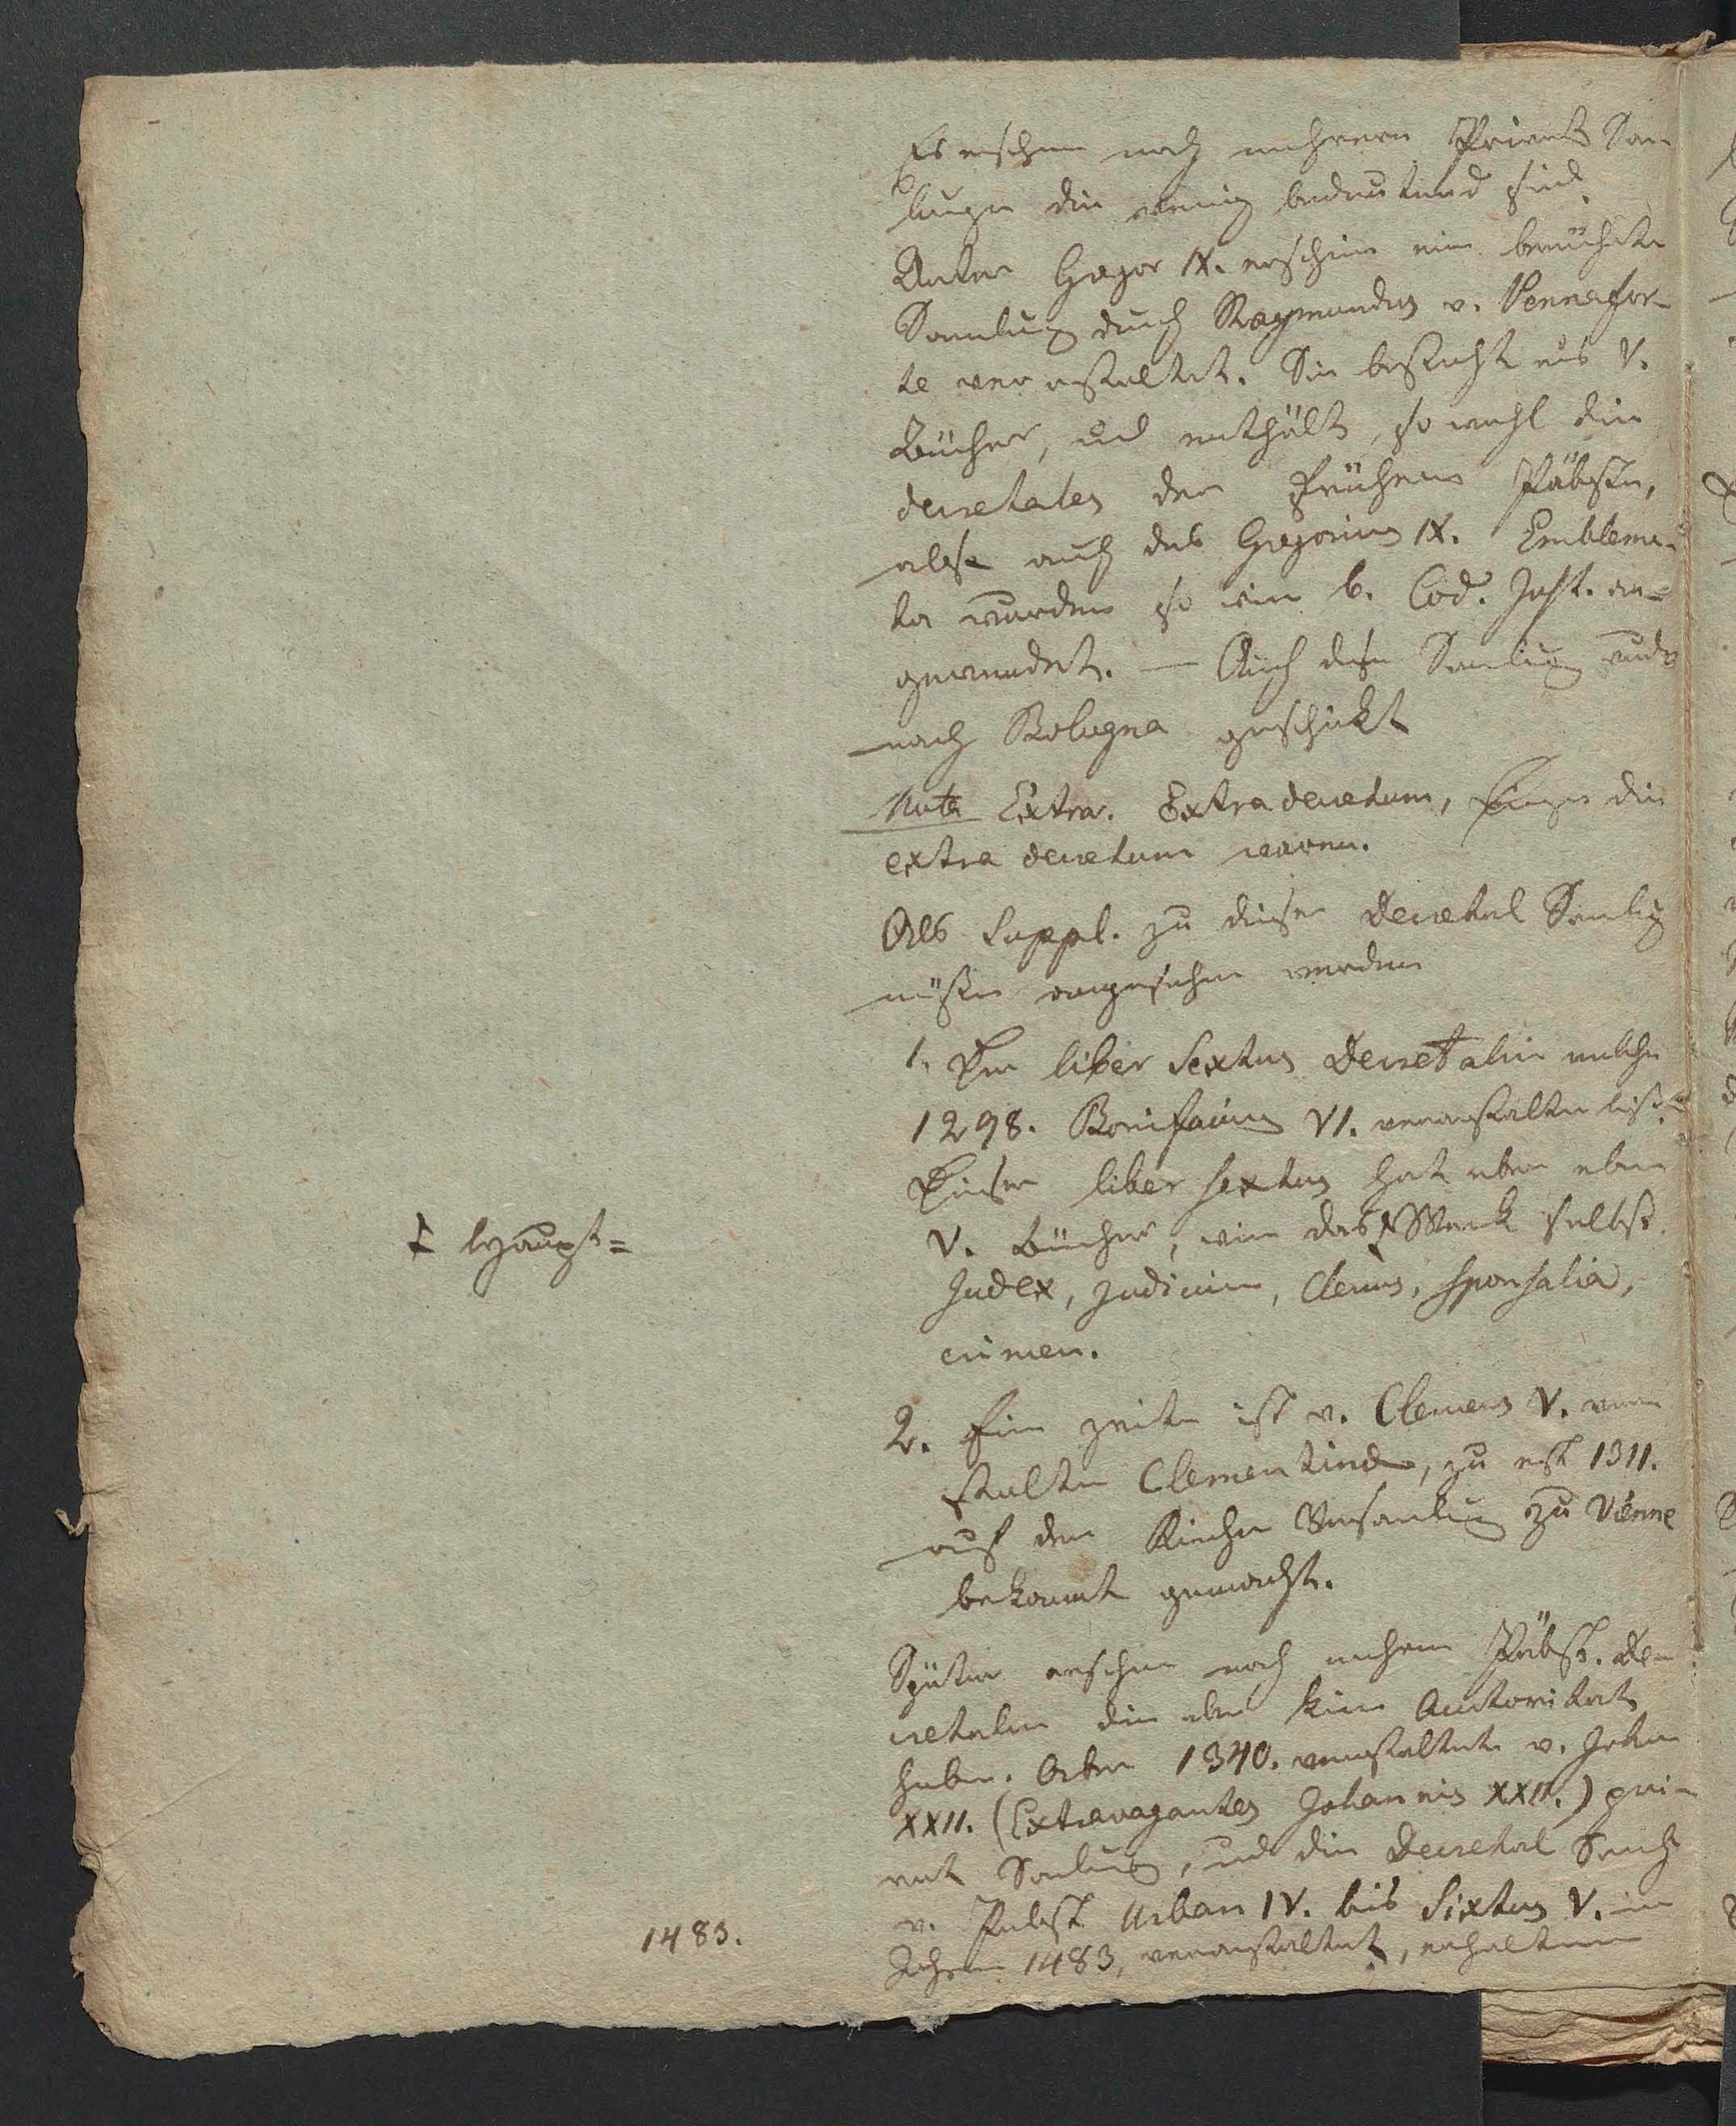 Es erschien noch mehrere Privat Sam
lungen die wenig bedeutend sind.
Unter Gregor IX. erschien eine berühmte
Samlung durch Raymundus v. Pennafor-
te veranstaltet. Sie besteht aus V.
Bücher, und enthält, so wohl die
decretales der frühern Päbste,
als auch des Gregorius IX. Emblema-
ta wurden so wie b. Cod. Just. an=
gewendet. — Auch diese Samlung wurde
nach Bologna geschickt
Nota Extra. Extra decretum, die
extra decretum waren.
Als Suppl. zu dieser Decretal Samlung
müßen angesehen werden
1. Der liber Sextus Decretalium welche
1298. Bonifacius VI. veranstalten ließ.
Dieser liber sextus hat aber eben
V. Bücher, wie das Ɨ Werk selbst.
Ɨ Haupt=
Judex, Judicium, Clerus, sponsalia,
crimen.
2. Eine zweite ist v. Clemens V. veran
stalten Clementinae, zu erst 1311.
auf der Kirchen Versamlung zu Vienne
bekannt gemacht.
Später erschien noch mehrere Päbst. De-
cretalen die aber keine Auctoritaet
haben. Aber 1340. veranstaltete v. Johan
XXII. (Extravagantes Johannis XXII.) pri-
vat Samlung, und die Decretal Samlg
v. Pabst Urban IV. bis Sixtus V. im
1483.
Jahre 1483, veranstaltet, erhalten